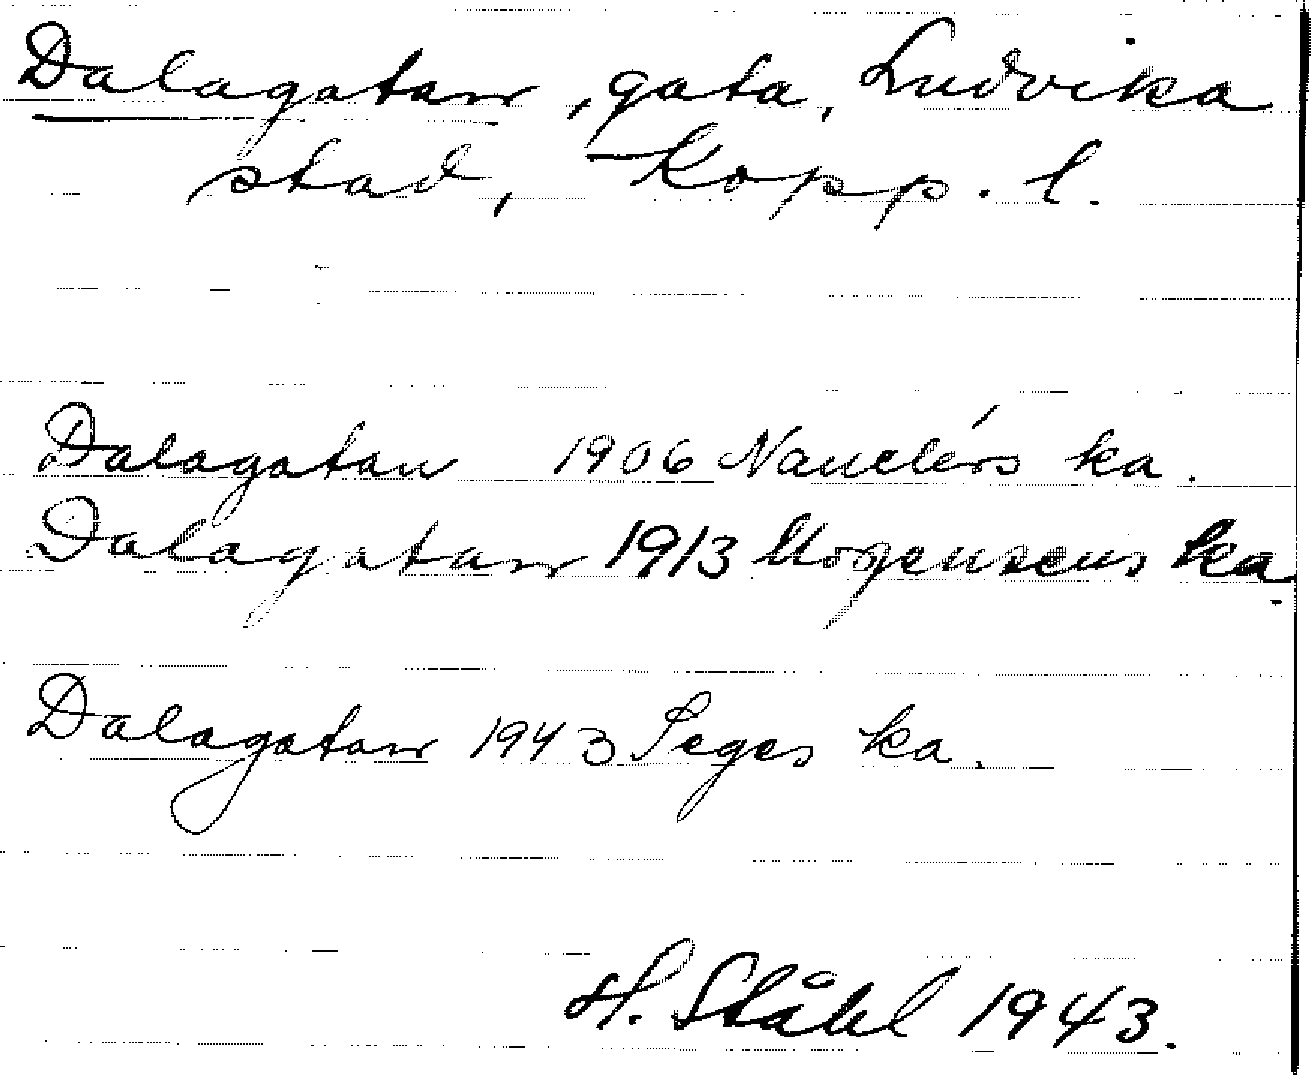 Dalagatan, gata, Ludvika
stad, Kopp. l.
Dalagatan 1906 Nauclérs ka.
Dalagatan 1913 Mogensens ka.
Dalagatan 1943 Seges ka.
H. Ståhl 1943.